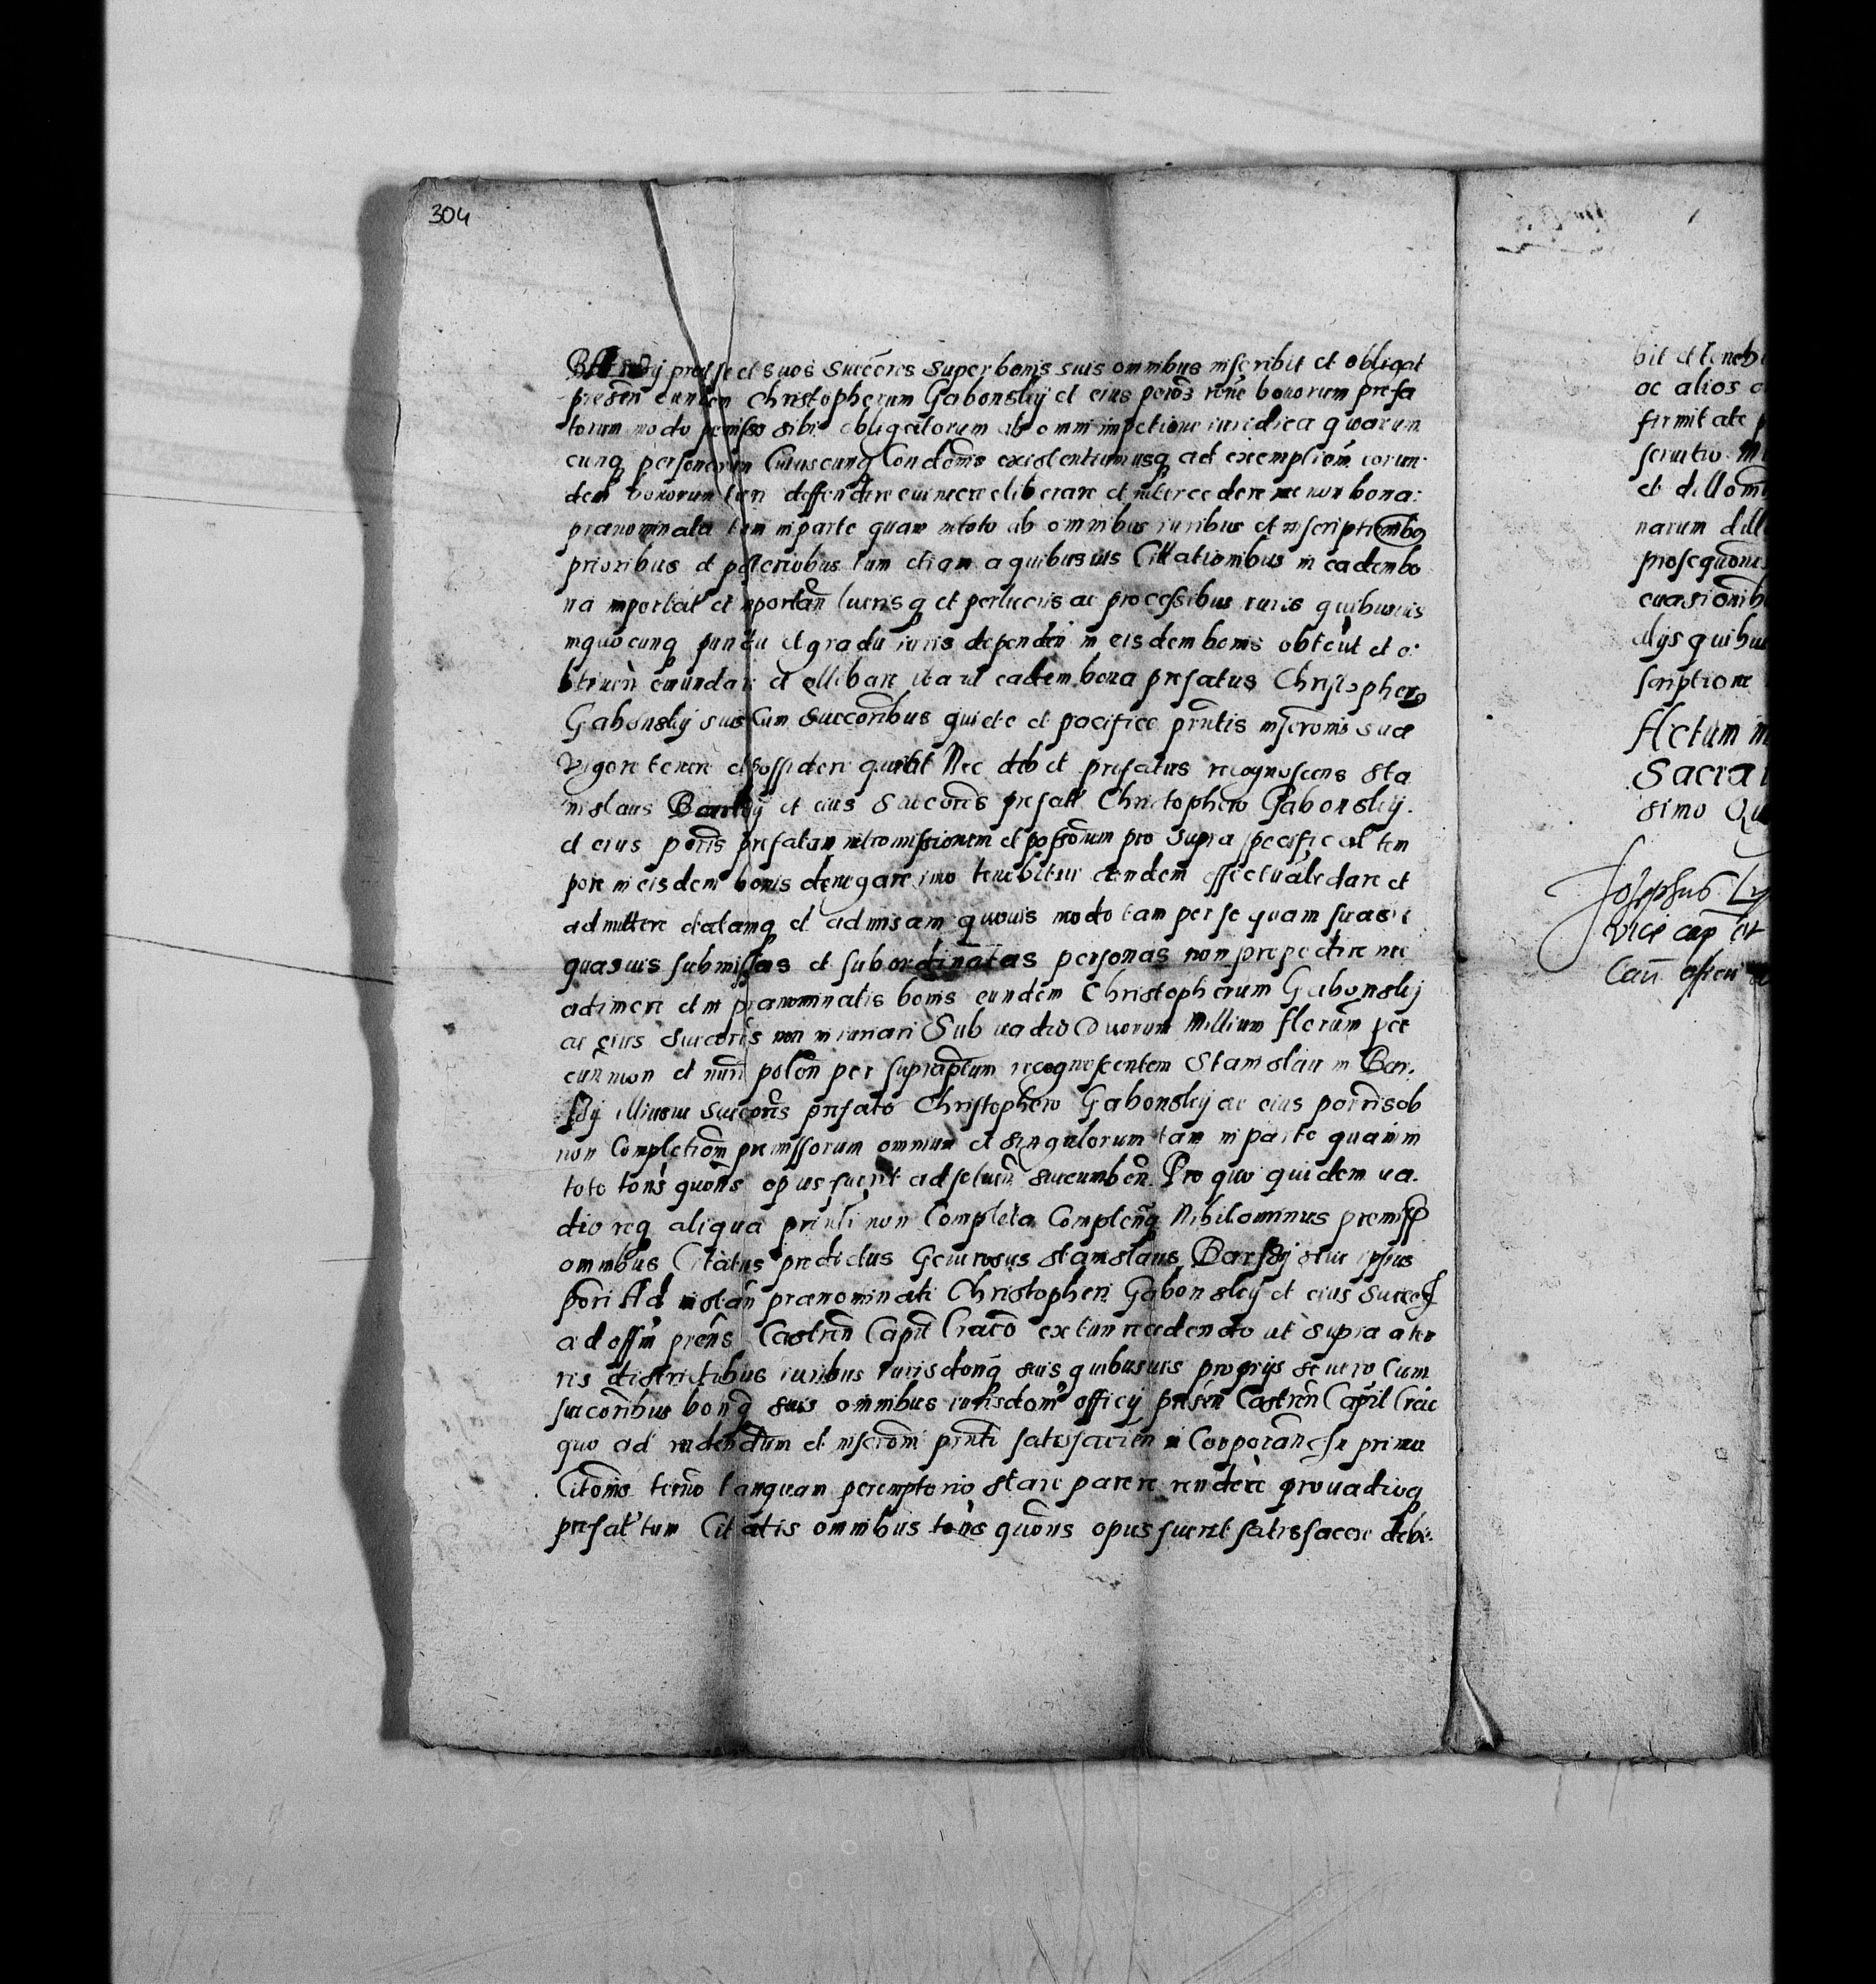 304
Barsky pro se et suos succēres super bonis suis omnibus inscribit et obligat
presēn eundem Christopherum Gabonskij et eius poros rōne bonorum prefa
torum modo premisso sibi obligatorum ab omni impetione iuridica quarum
cunq personarum Cuiuscunq Condōnis existentium usq ad exemptiōm eorun
dem bonorum tueri deffendere euincere eliberare et intercedere nec non bona:
prænominata tam in parte quam in toto ab omnibus iuribus et inscriptionibo
prioribus et posterioribus tum etiam a quibusuis Cittationibus in eadem bo
na inportat et inportan lucris q et perlucris ac processibus iuris quibusuis
in quocunq puncto et gradu iuris dependēn in eisdem bonis obtēnt et o:
btinēn emundare et ellibare ita ut eadem bona prefatus Christopherus
Gabonskij suis Cum Succoribus quiete et pacifice prntis inscronis suæ
vigore tenere et possidere queat Nec debet prefatus recognoscens Sta
nislaus Barskij et eius Succores prefat Christophero Gabonskij.
et eius poris prefatam intromissionem et possōrum pro supra specificat tem
pore in eisdem bonis denegare imo tenebitur eandem effectuāl dare et
admittere datamq et admisam quouis modo tam per se quam suas i
quasuis submissas et subordinatas personas non prepedire nec
adimere et in prænominatis bonis eundem Christopherum Gabonskij
ac eius succores non iniuriari Sub uadio Duorum Millium florūm pec
cun mon et nūri polon per supraptum recognoscentem Stanislaum Bar.
skij illiusue succores prefato Christophero Gabonskij ac eius poris ob
non Completiōm premissorum omnium et singulorum tam in parte quam in
toto tōns quōns opus fuerit ad soluēn succumbēn. Pro quo quidem ua.
dio req aliqua prinli non Completa Complenq Nihilominus premiss
omnibus Citatus predictus Generosus Stanislaus Barskij siue ipsius
pori Ad instān prænominati Christopheri Gabonskij et eius succes
ad offm prēns Castren Capit Craco ex tun recedendo ut supra a ter
ris districtibus iuribus iurisdonq suis quibusuis proprijs se uero Cum
succoribus bonq suis omnibus iurisdom officij presēn Castren Capit Crac
quo ad reddendum et inscrom prnti satisfacien incorporan se primo
Citonis termo tanquam peremptorio stare parere rendere pro uadioq
prefat tum Citatis omnibus tōns quōns opus fuerit satisfacere debe:
bit et teneb
ac alios
firmitate
seruitio
et dillom
narum dill
prosequone
euasionib
alijs quibu
scriptione
Actum in
Sacra
simo Qu
Josephus
vice cap